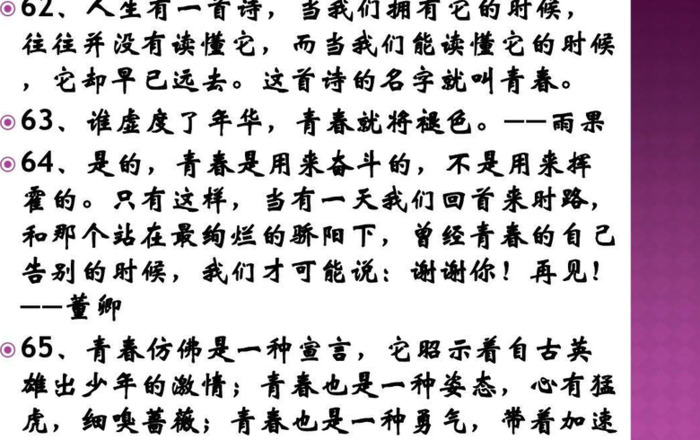 62、人生有一首诗，当我们拥有它的时候，
往往并没有读懂它，而当我们能读懂它的时候
，它却早已远去。这首诗的名字就叫青春。
63、谁虚度了年华，青春就将褪色。——雨果
64、是的，青春是用来奋斗的，不是用来挥
霍的。只有这样，当有一天我们回首来时路，
和那个站在最绚烂的骄阳下，曾经青春的自己
告别的时候，我们才可能说：谢谢你！再见！
——董卿
65、青春仿佛是一种宣言，它昭示着自古英
雄出少年的激情；青春也是一种姿态，心有猛
虎，细嗅蔷薇；青春也是一种勇气，带着加速